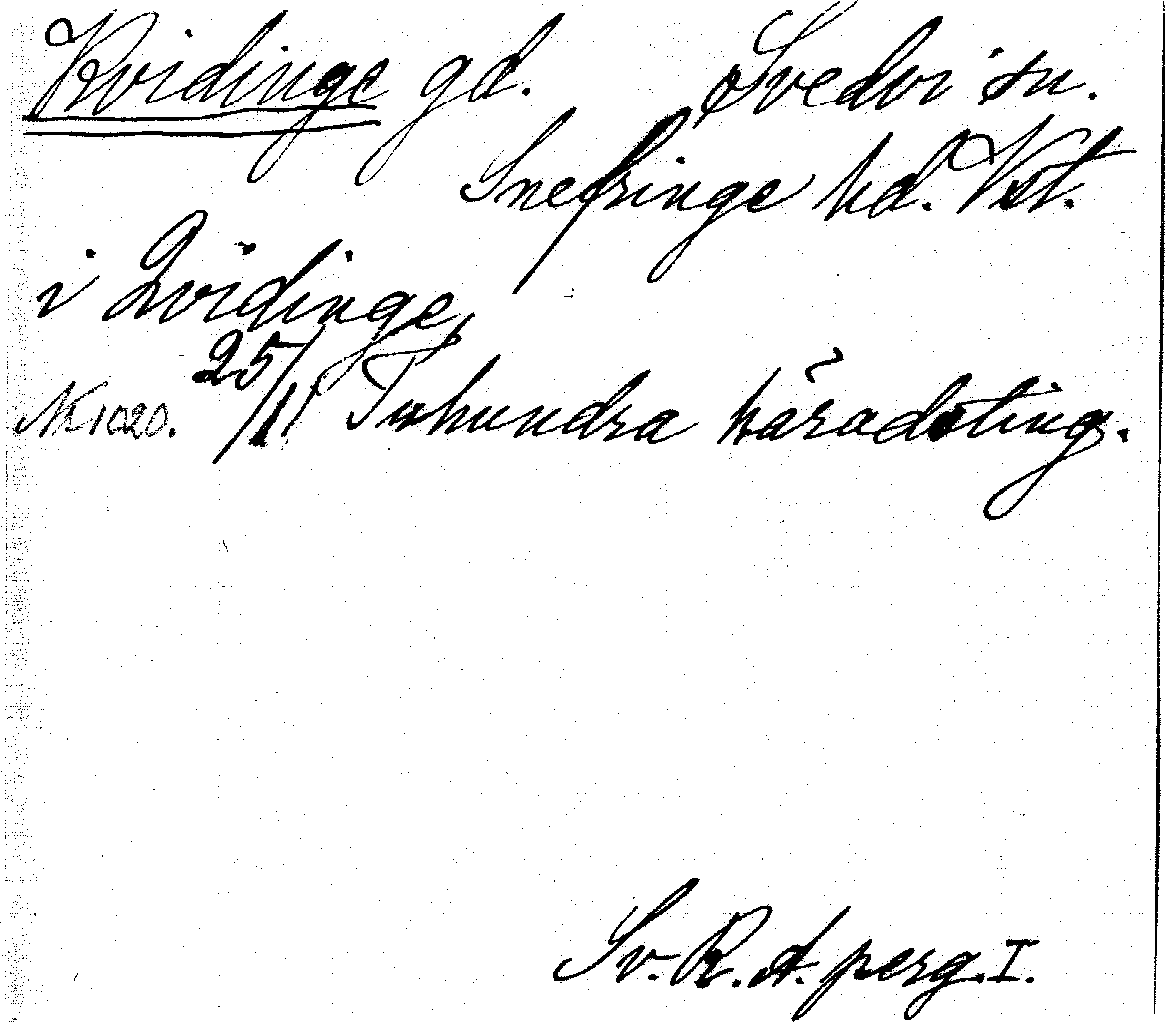 Kvidinge gd. Svedvi sn.
Snefringe hd. Vstl.
i Qvidinge,
Nr 1020. 25/11 Tuhundra häradsting.
Sv. R. A. perg. I.